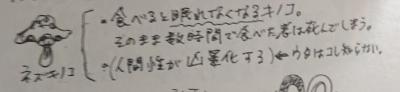 ・食べると眠れなくなるキノコ。
そのまま数時間で食べた者は死んでしまう。
・(人間性が凶暴化する)←ウタはコレ知らない。
ネズキノコ